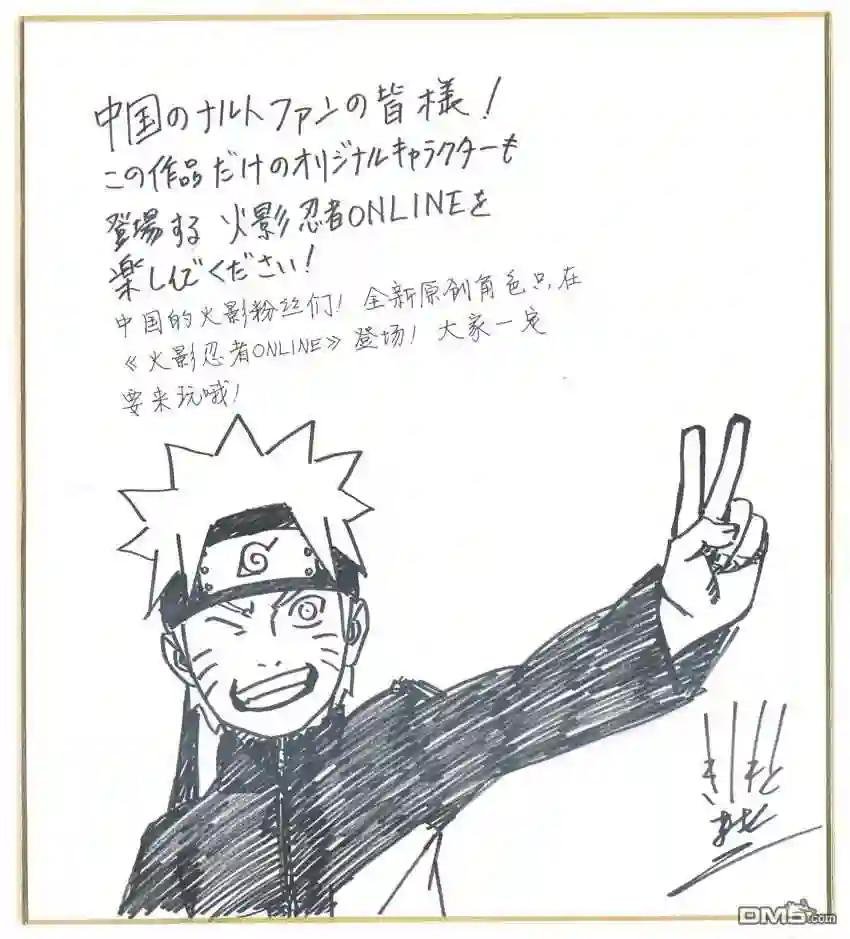 中国のナルトファンの皆様！
この作品だけのオリジナルキャラクターも
登場する 火影忍者ONLINEを
楽しんでください！
中国的火影粉丝们！全新原创角色只在
《火影忍者ONLINE》登场！大家一定
要来玩哦！
DM5.com